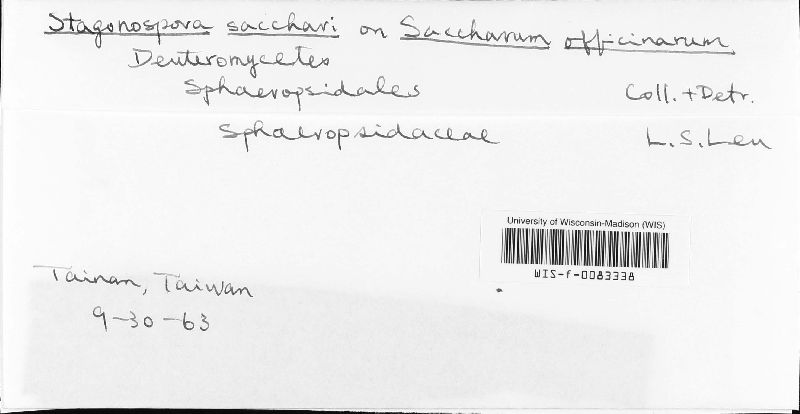 Stagonospora sacchari on Saccharum officinarum.
Deuteromycetes
Sphaeropsidales
Coll. + Detr.
Sphaeropsidaceae
L.S. Leu
University of Wisconsin-Madison (WIS)
WIS-f-0083338
Tainan, Taiwan
9-30-63